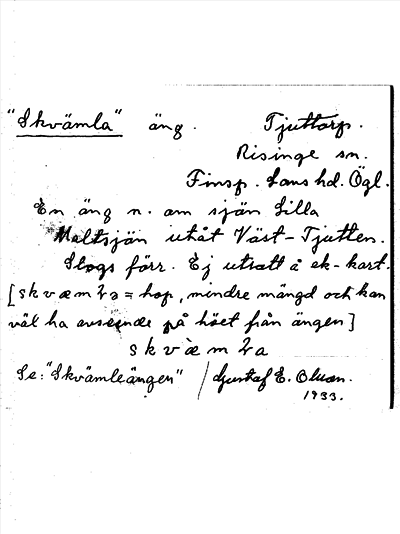 "Skvämla" äng. Tjuttorp.
Risinge sn.
Finsp. Läns hd. Ögl.
En äng n. om sjön Lilla
Maltsjön utåt Väst-Tjutten.
Slogs förr. Ej utsatt å ek-kart.
[skvæmla = hop, mindre mängd och kan
väl ha avseende på höet från ängen]
skvæmla
Se: "Skvämleängen" / Gustaf E. Olson.
1933.